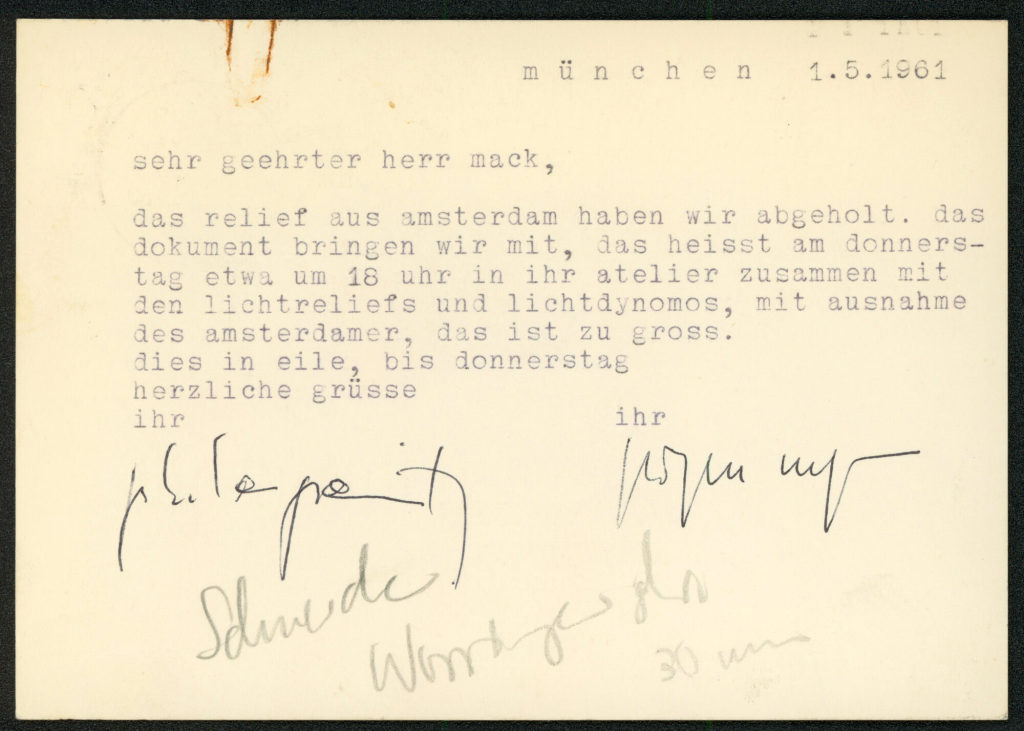 münchen 1.5.1961
sehr geehrter herr mack,
das relief aus amsterdam haben wir abgeholt. das
dokument bringen wir mit, das heisst am donners-
tag etwa um 18 uhr in ihr atelier zusammen mit
den lichtreliefs und lichtdynomos, mit ausnahme
des amsterdamer, das ist zu gross.
dies in eile, bis donnerstag
herzliche grüsse
ihr ihr
30 mm